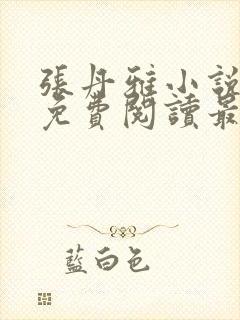 張丹雅小說
免費閱讀最
藍白色